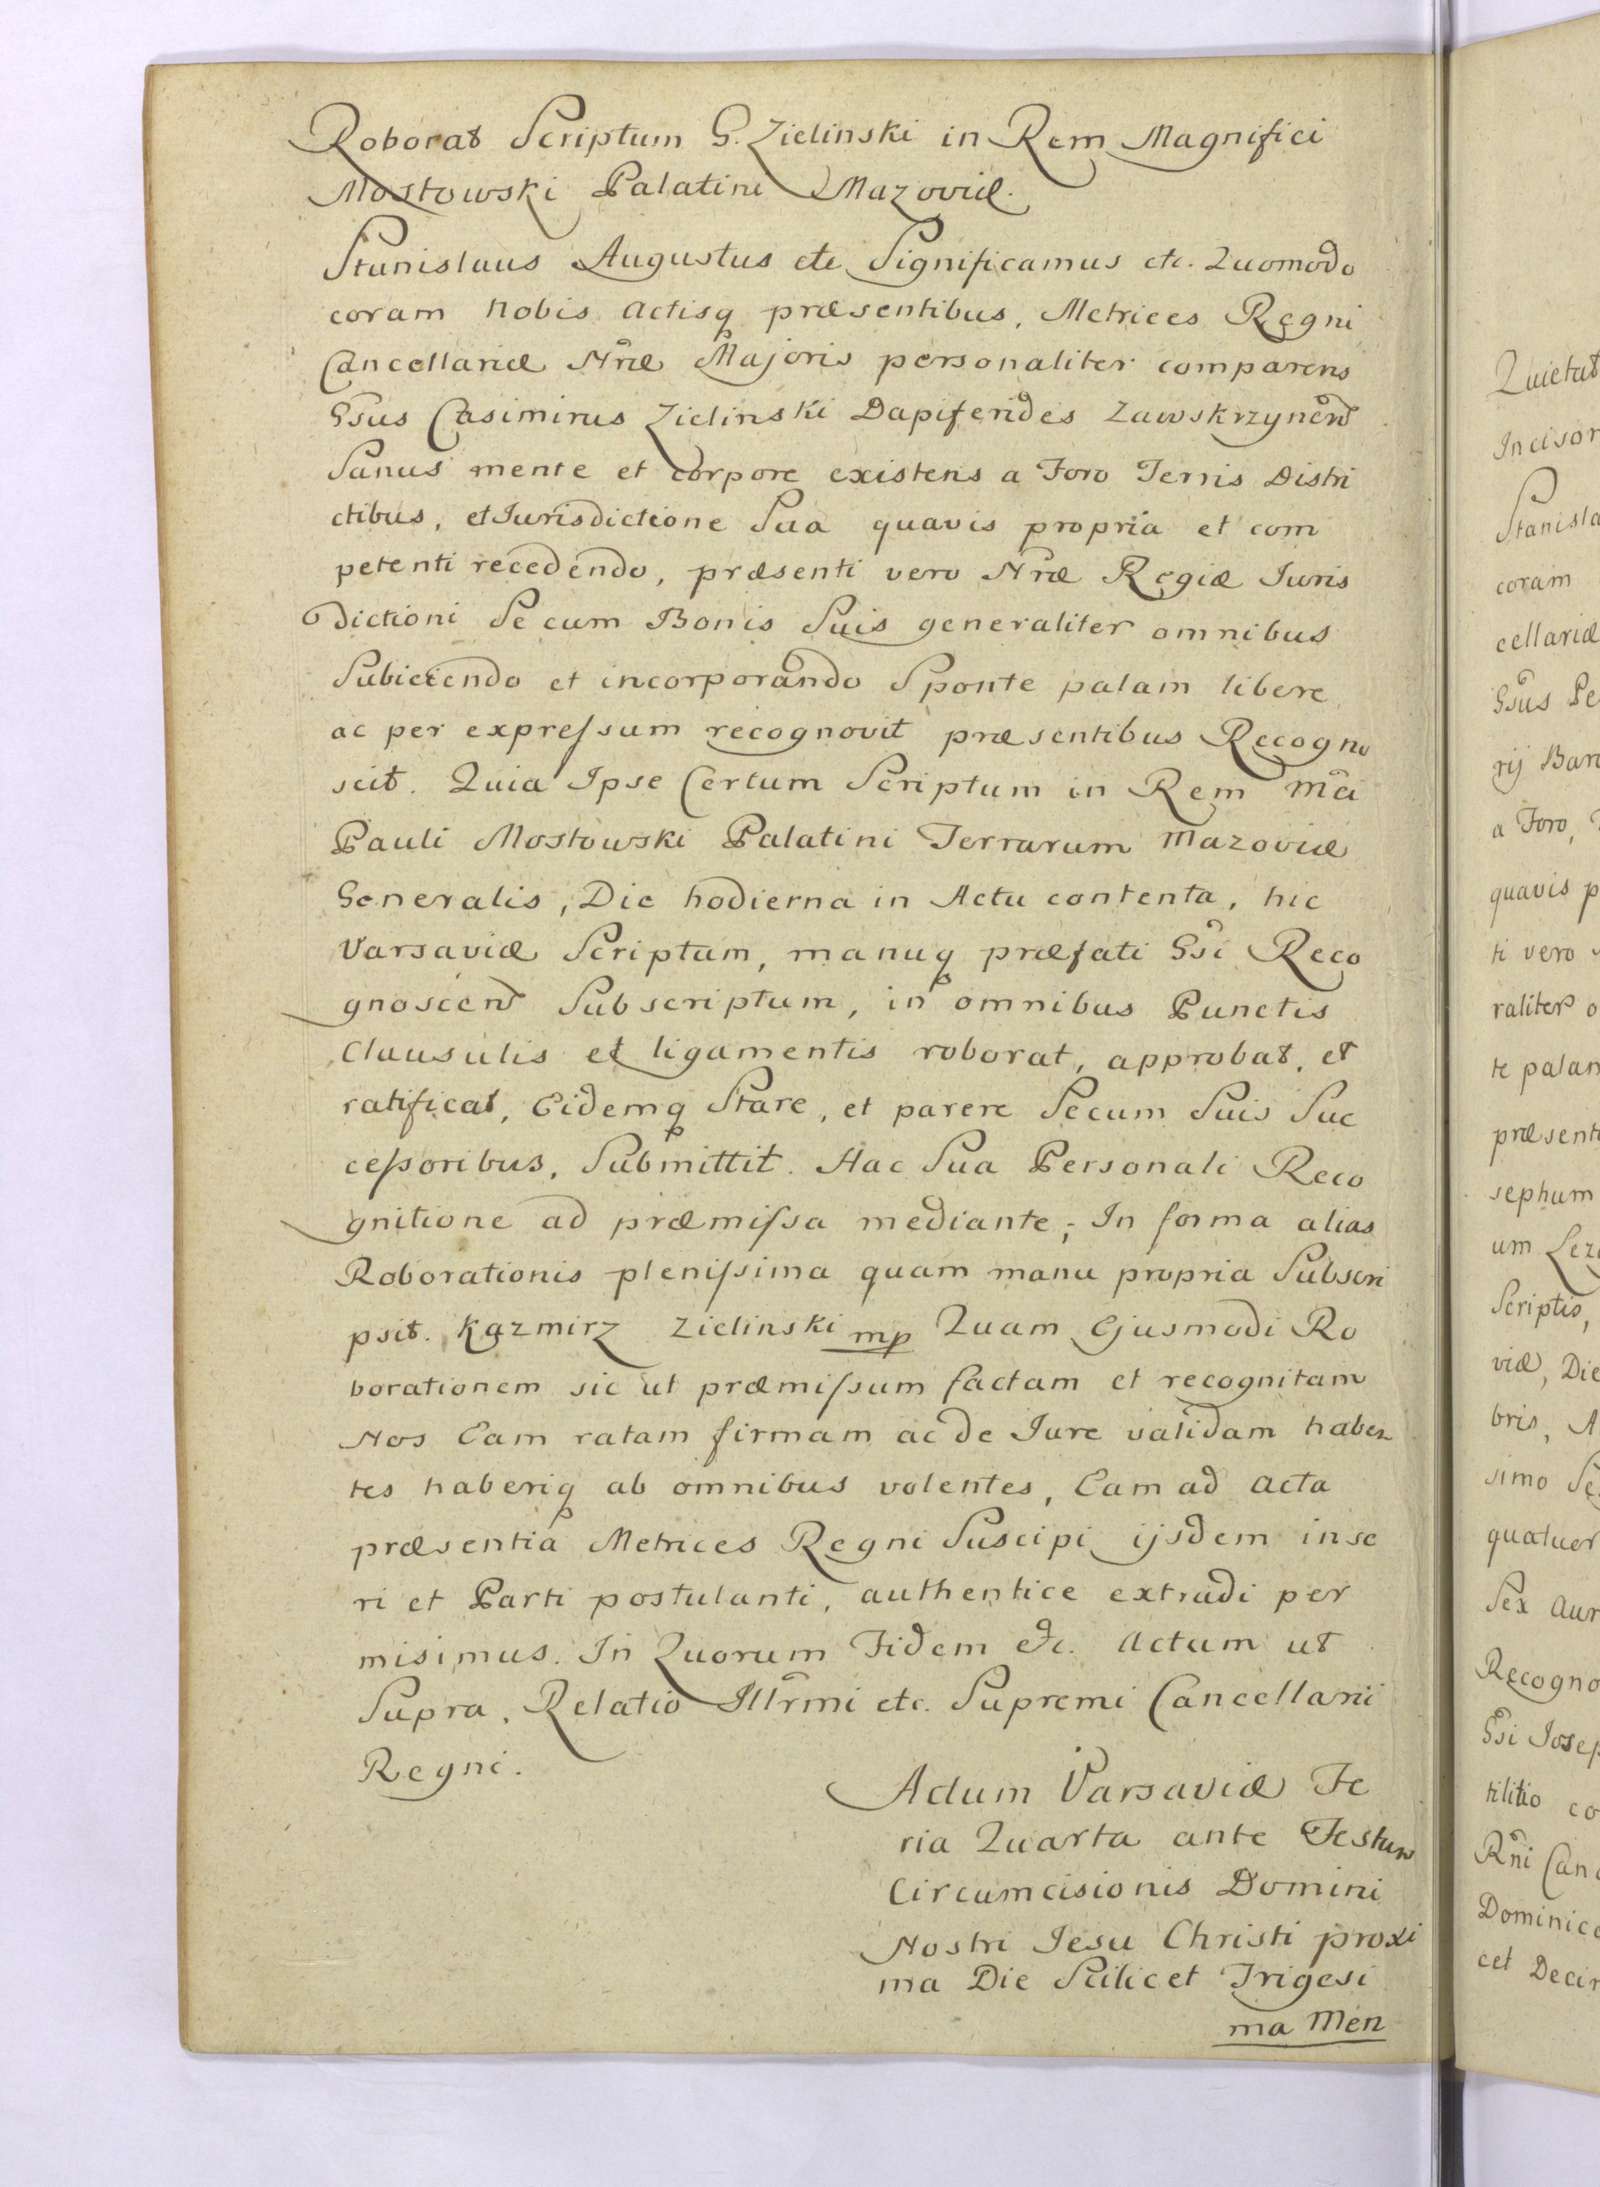 Roborat Scriptum G. Zielinski in Rem Magnifici
Mostowski Palatini Mazoviæ.
Stanislaus Augustus etc Significamus etc. Quomodo
coram Nobis Actisq præsentibus, Metrices Regni
Cancellariæ Nræ Majoris personaliter comparens
Gsus Casimirus Zielinski Dapiferides Zawskrzynen
Sanus mente et corpore existens a Foro Terris Distri
ctibus, et Iurisdictione Sua quavis propria et com
petenti recedendo, præsenti vero Nræ Regiæ Iuris
dictioni Se cum Bonis Suis generaliter omnibus
Subiiciendo et incorporando Sponte palam libere
ac per expreſsum recognovit præsentibus Recogno
scit. Quia Ipse Certum Scriptum in Rem Mci
Pauli Mostowski Palatini Terrarum Mazoviæ
Generalis, Die hodierna in Actu contenta, hic
Varsaviæ Scriptum, manuq præfati Gsi Reco
gnoscen Subscriptum, in omnibus Punctis
Clausulis et ligamentis roborat, approbat, et
ratificat, Eidemq Stare, et parere Secum Suis Suc
ceſsoribus, Submittit. Hac Sua Personali Reco
gnitione ad præmiſsa mediante; In forma alias
Roborationis pleniſsima quam manu propria Subscri
psit. Kazmirz Zielinski mp Quam Ejusmodi Ro
borationem sic ut præmiſsum factam et recognitam
Nos Eam ratam firmam ac de Iure validam haben
tes haberiq ab omnibus volentes, Eam ad Acta
præsentia Metrices Regni Suscipi ijsdem inse
ri et Parti postulanti, authentice extradi per
misimus. In Quorum Fidem etc. Actum ut
Supra. Relatio Illrmi etc. Supremi Cancellarii
Regni.
Actum Varsaviæ Fe
ria Quarta ante Festum
Circumcisionis Domini
Nostri Iesu Christi proxi
ma Die Scilicet Trigesi
ma Men
Quietat
Incisor
Stanisla
coram
cellariæ
Gsus Pe
rij Bar
a Foro,
quavis p
ti vero
raliter o
te palam
præsenti
sephum
um Lez
Scriptis,
viæ, Die
bris, A
simo Se
quatuor
Sex Aur
Recogno
Gsi Josep
tilitio co
Rni Canc
Dominica
cet Decim